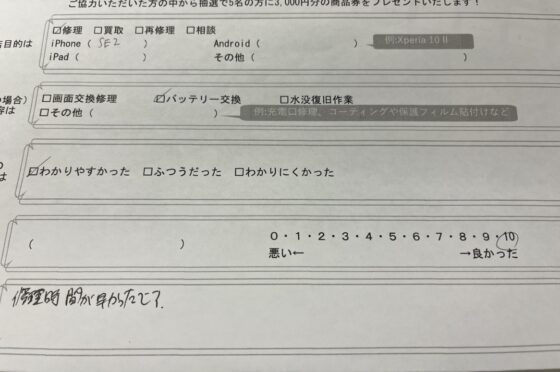 ご協力いただいた方の中から抽選で5名の方に3,000円分の商品券をプレゼントいたします！
☑修理 □買取 □再修理 □相談
店目的は
iPhone（ SE2 ） Android（ ） 例:Xperia 10 II
iPad（ ） その他（ ）
の場合） □画面交換修理 ☑バッテリー交換 □水没復旧作業
容は □その他（ ） 例:充電口修理、コーティングや保護フィルム貼付けなど
の
は ☑わかりやすかった □ふつうだった □わかりにくかった
0・1・2・3・4・5・6・7・8・9・10
（ ） 悪い← →良かった
修理時間が早かったです。